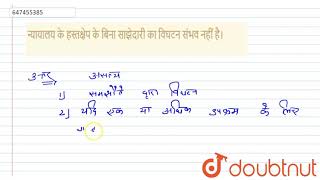 647455385
न्यायालय के हस्तक्षेप के बिना साझेदारी का विघटन संभव नहीं है।
उत्तर असत्य
1) समझौते द्वारा विघटन
2) यदि एक या अधिक उपक्रम के लिए
doubtnut